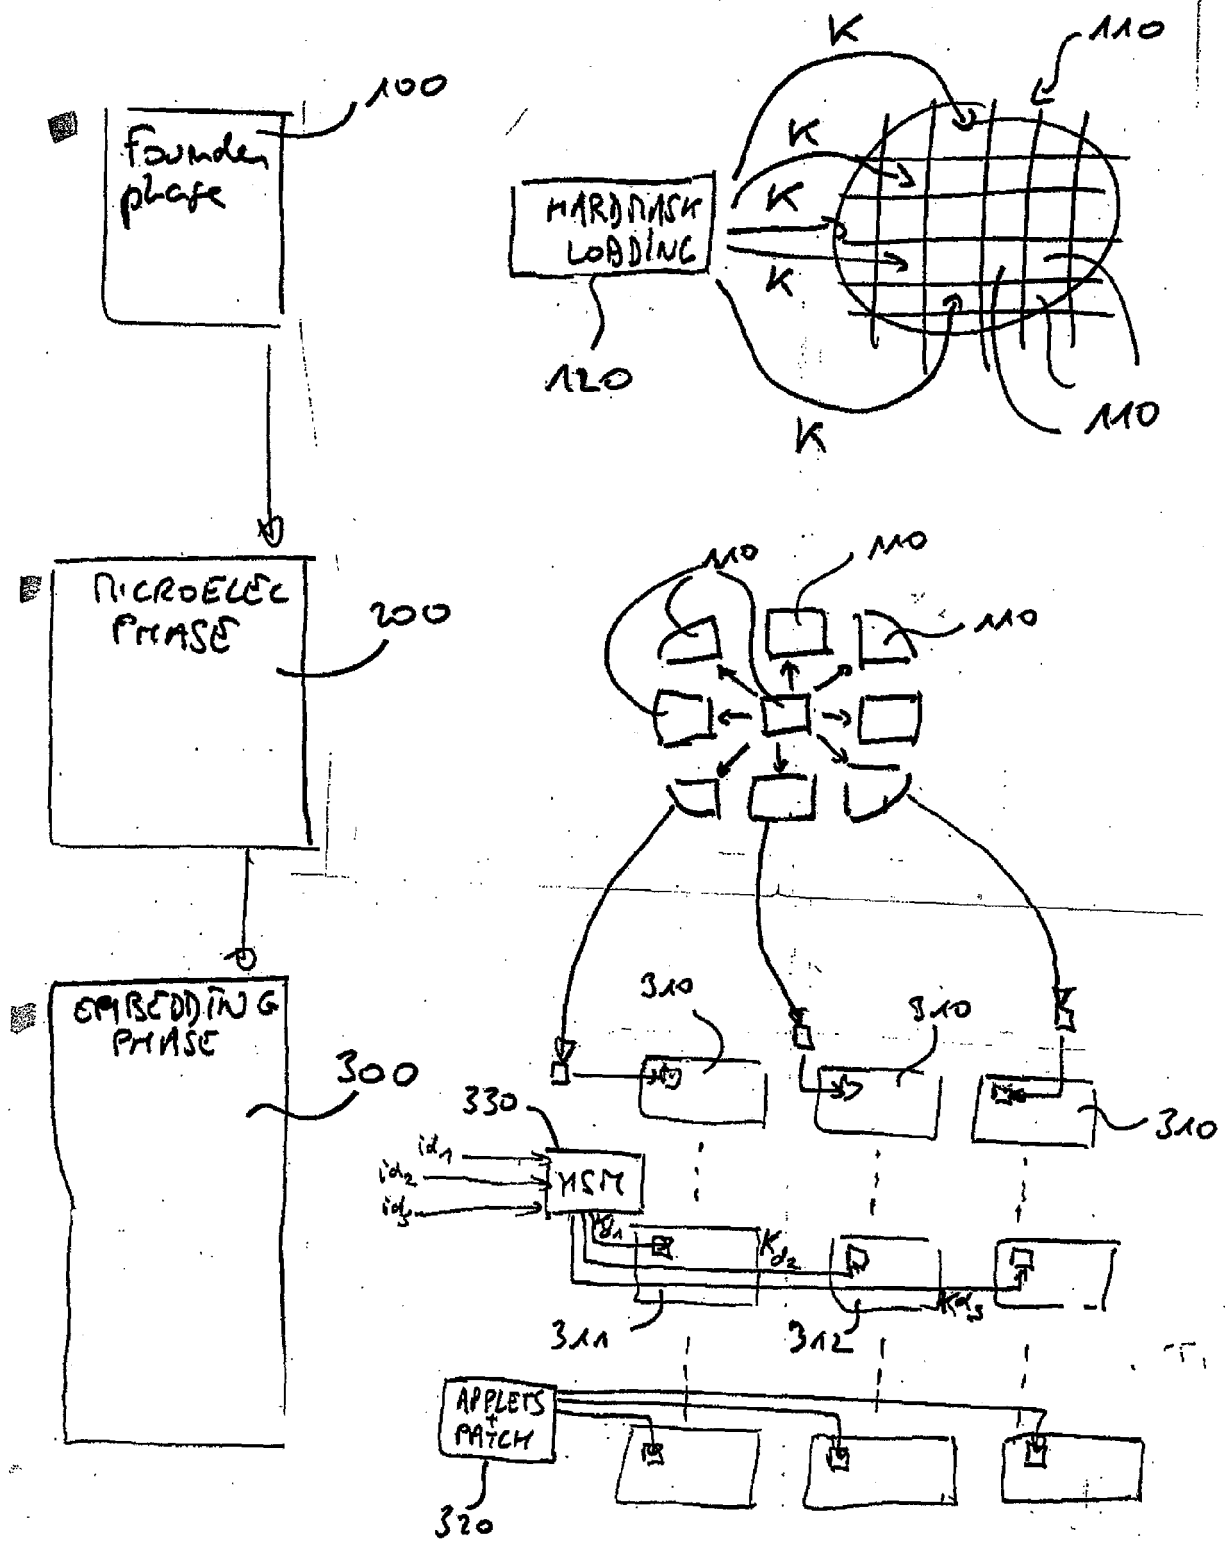 100
Founder
phase
K
110
K
K
K
K
HARDMASK
LOADING
120
110
MICROELEC
PHASE
200
110
110
110
EMBEDDING
PHASE
300
310
310
310
330
id1
id2
id3
HSM
Kd1
Kd2
Kd3
311
312
APPLETS
+
PATCH
320